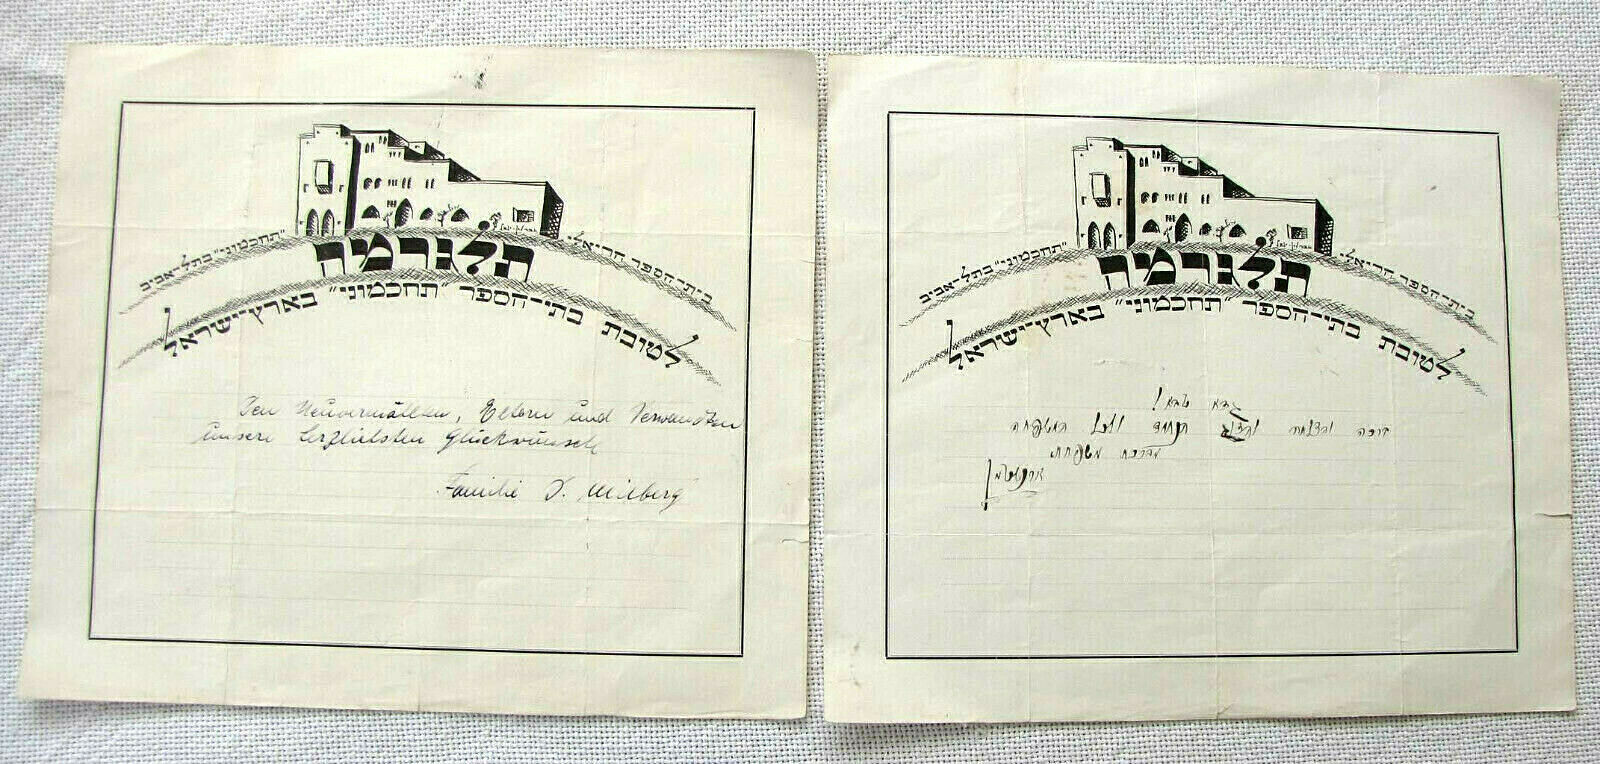 בית-הספר הריאלי "תחכמוני" בתל-אביב
תלגרמה
לטובת בתי-הספר "תחכמוני" בארץ-ישראל
Den Neuvermälten, Eltern und Verwandten
unsere herzlichsten Glückwünsche
Familie J. Milberg
בית-הספר הריאלי "תחכמוני" בתל-אביב
תלגרמה
לטובת בתי-הספר "תחכמוני" בארץ-ישראל
גדא טבא!
ברכה והצלחה לזוג הנחמד ולכל המשפחה
מברכת משפחת